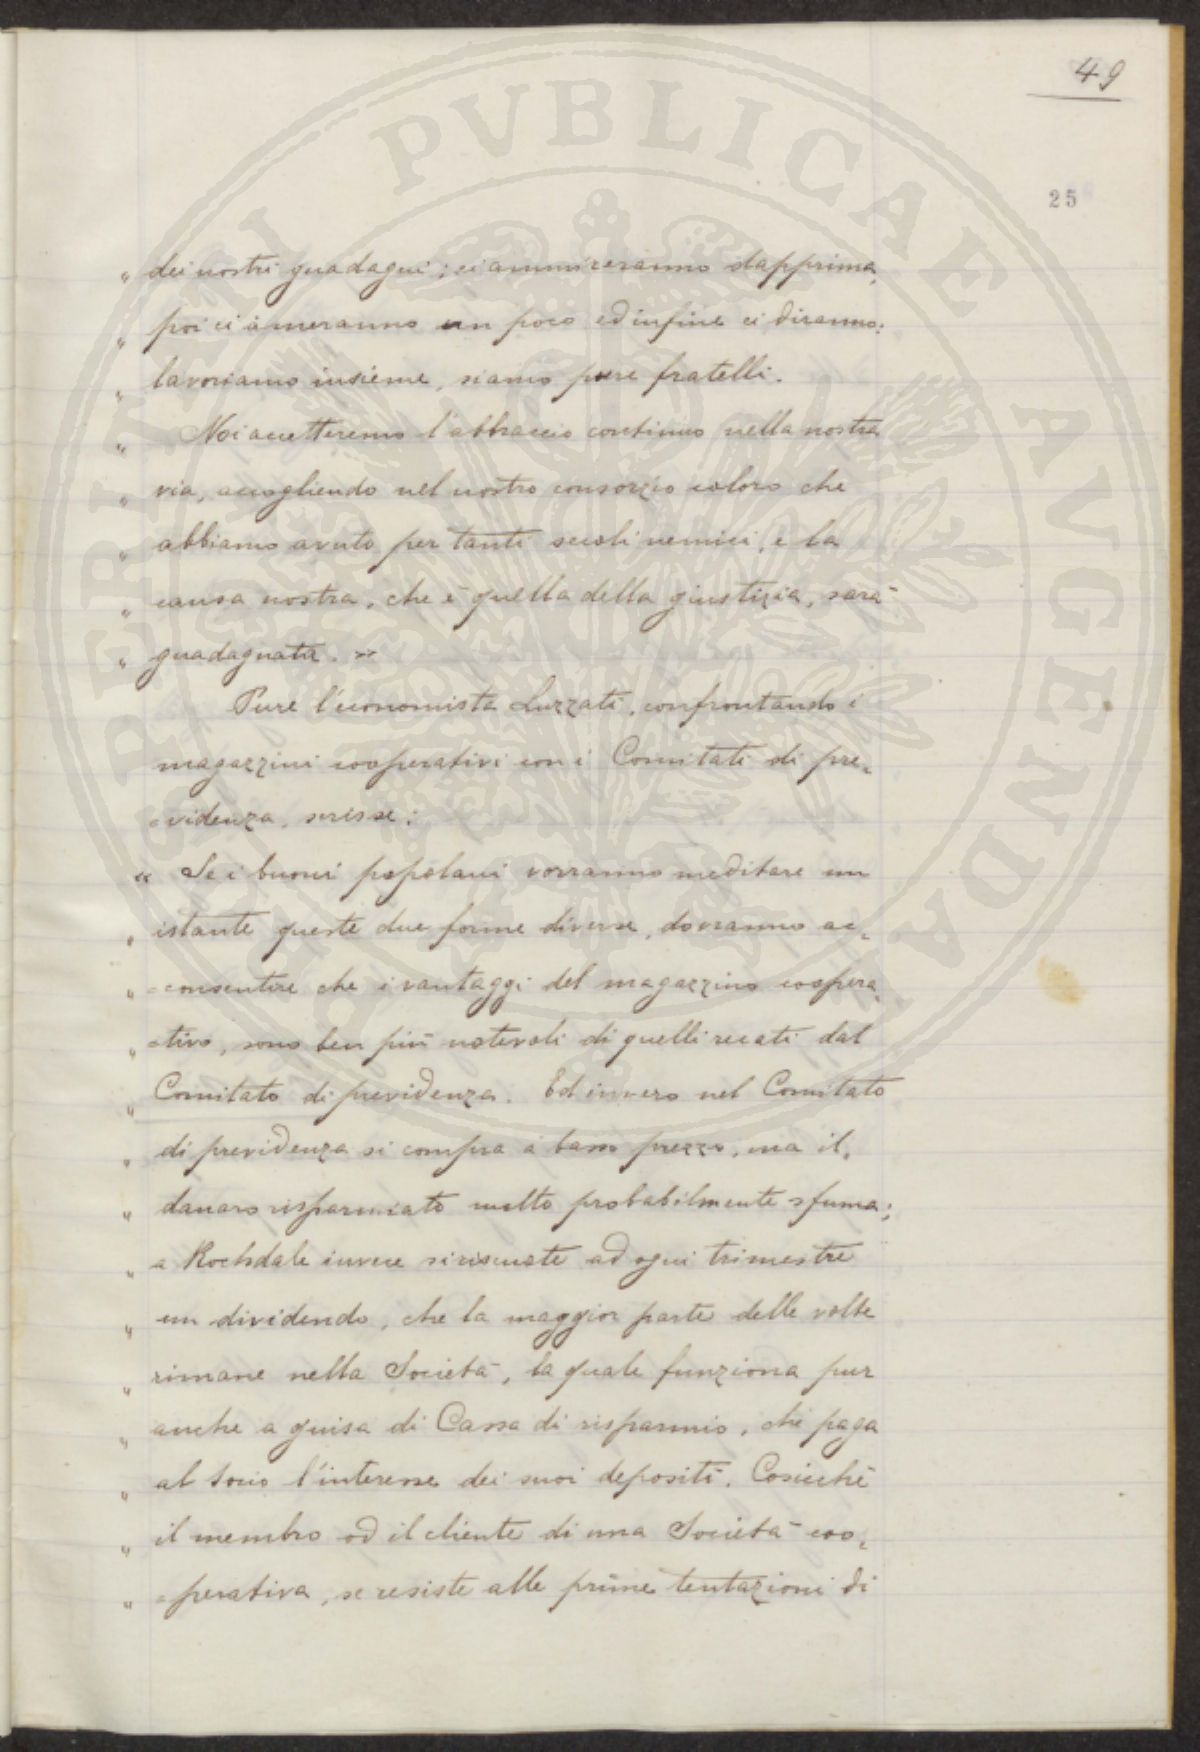 49
25
" dei nostri guadagni; ci ammireranno dapprima,
" poi ci ameranno un poco ed infine ci diranno:
" lavoriamo insieme, siamo pure fratelli.
" Noi accetteremo l'abbraccio continuo nella nostra
" via, accogliendo nel nostro consorzio coloro che
" abbiamo avuto per tanti secoli nemici, e la
" causa nostra, che è quella della giustizia, sarà
" guadagnata. »
Pure l'economista Luzzati, confrontando i
magazzini cooperativi con i Comitati di pre=
=videnza, scrisse:
« Se i buoni popolani vorranno meditare un
" istante queste due forme diverse, dovranno ac=
" =consentire che i vantaggi del magazzino coopera=
" =tivo, sono ben più notevoli di quelli recati dal
" Comitato di previdenza. Ed invero nel Comitato
" di previdenza si compra a basso prezzo, ma il
" danaro risparmiato molto probabilmente sfuma;
" a Rochdale invece si riscuote ad ogni trimestre
" un dividendo, che la maggior parte delle volte
" rimane nella Società, la quale funziona pur
" anche a guisa di Cassa di risparmio, che paga
" al socio l'interesse dei suoi depositi. Cosicchè
" il membro od il cliente di una Società coo=
" =perativa, se resiste alle prime tentazioni di
PROSPERITATI PVBLICAE AVGENDAE